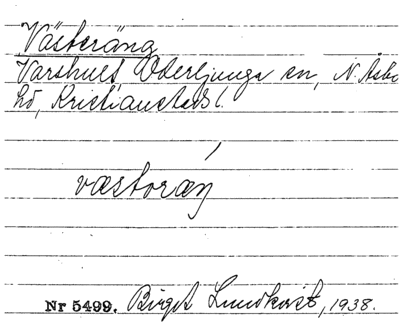 Västeräng
Varshult, Oderljunga sn, N. Åsbo
hd, Kristianstads l.
væstoræŋ
Nr 5499. Birgit Lundkvist, 1938.